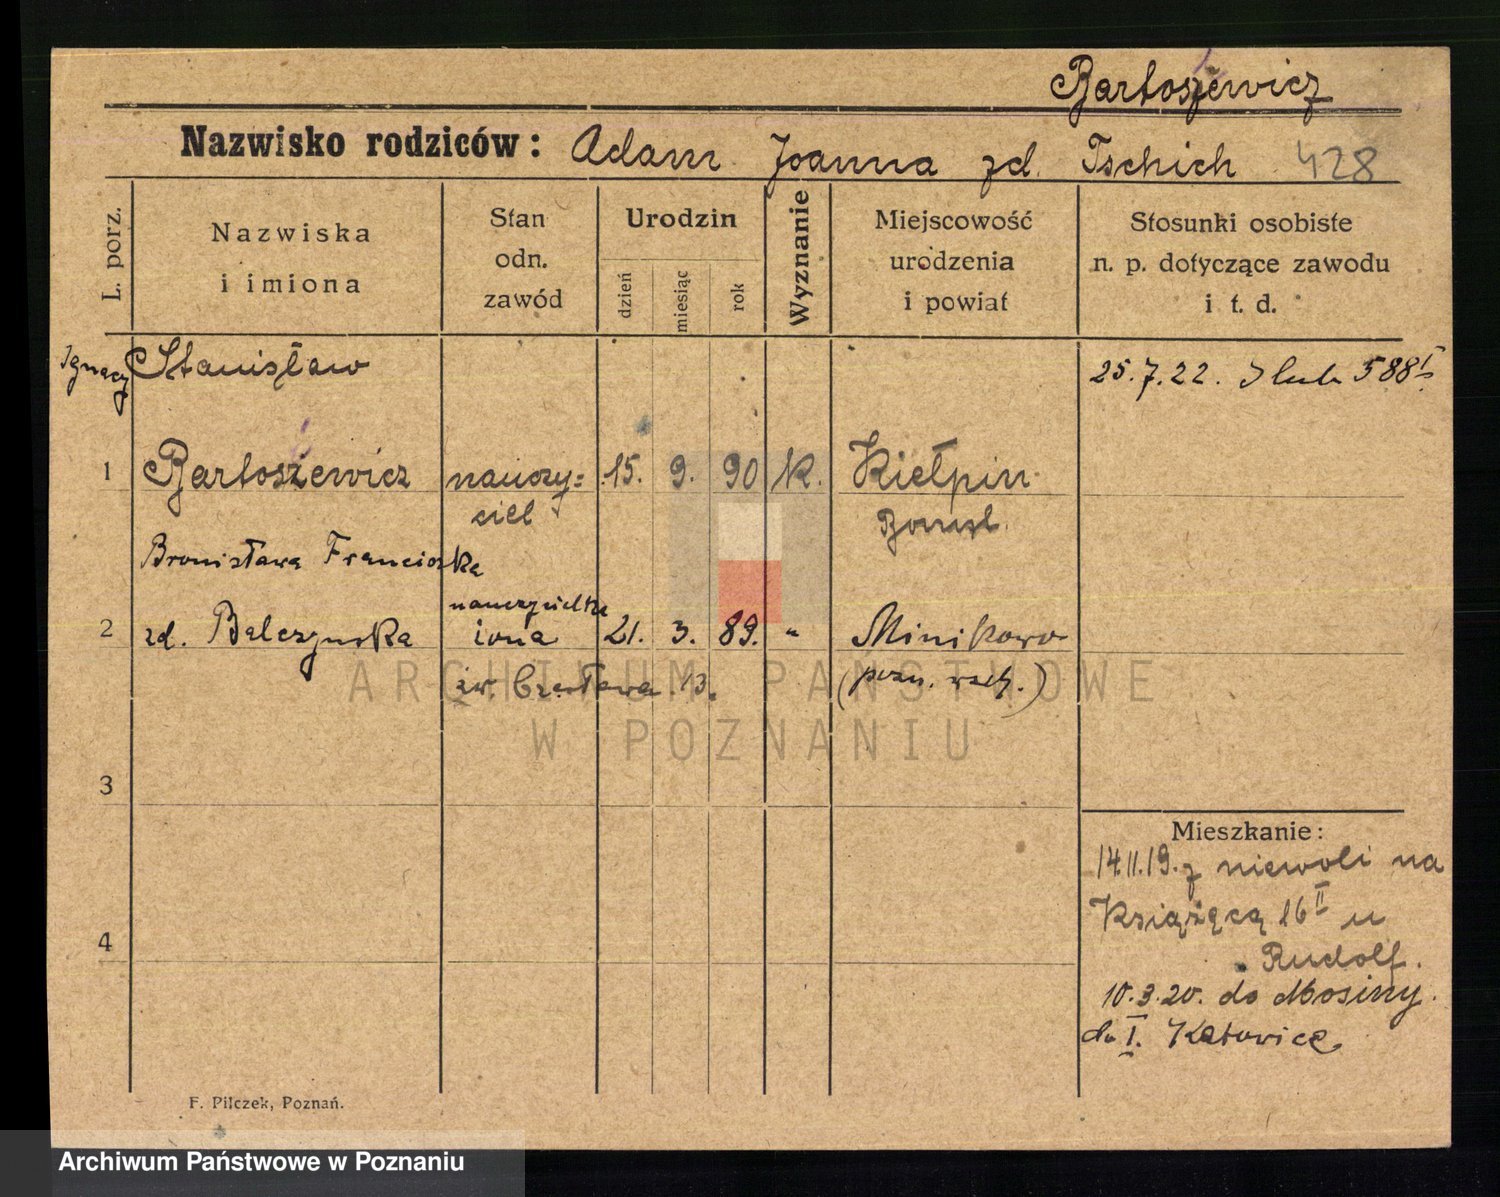 Bartoszewicz
Nazwisko rodziców: Adam Joanna zd. Tschich 428
L. porz.
Nazwiska i imiona
Stan odn. zawód
Urodzin
dzień
miesiąc
rok
Wyznanie
Miejscowość urodzenia i powiat
Stosunki osobiste n. p. dotyczące zawodu i t. d.
Ignacy Stanisław
25.7.22. Ślub 588 I
1 Bartoszewicz nauczy= 15. 9. 90 K. Kiełpin
ciel Bomst.
Bronisława Franciszka
nauczycielka
2 zd. Balczynska żona 21. 3. 89. " Minikowo
zw. Czesława 13. (pozn. wsch.)
3
4
Mieszkanie:
14.11.19. z niewoli na
Książęcą 16 II u
Rudolf.
10.3.20. do Mosiny.
do I. Katowice
F. Pilczek, Poznań.
ARCHIWUM PAŃSTWOWE
W POZNANIU
Archiwum Państwowe w Poznaniu